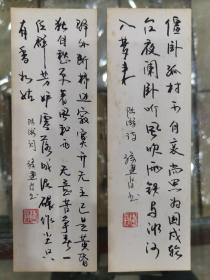 僵卧孤村不自哀尚思为国戍轮
台夜阑卧听风吹雨铁马冰河
入梦来 陆游诗
驿外断桥边寂寞开无主已是黄昏
独自愁更著风和雨无意苦争春一
任群芳妒零落成泥碾作尘只
有香如故 陆游词